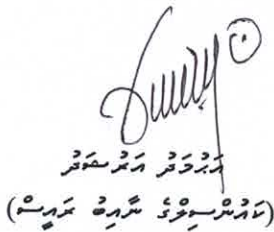 އަޙުމަދު އަރުޝަދު
(ކައުންސިލްގެ ނާއިބު ރައީސް)